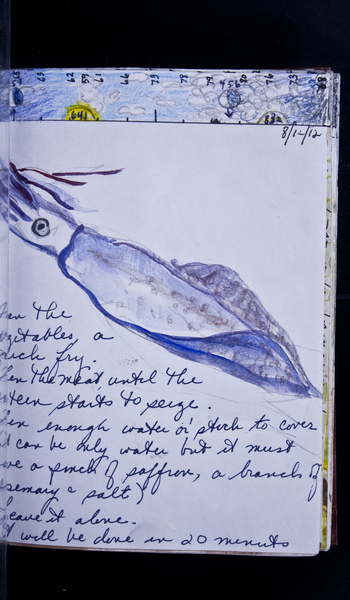 63 62 59 61 66 79 78 79 80 76 73 68
641
8/12/12
hen the
egetables, a
uch fry.
hen the meat until the
otein starts to seize.
hen enough water or stock to cover
t can be only water but it must
ave a pinch of saffron, a branch of
osemary & salt)
eave it alone.
t will be done in 20 minuts